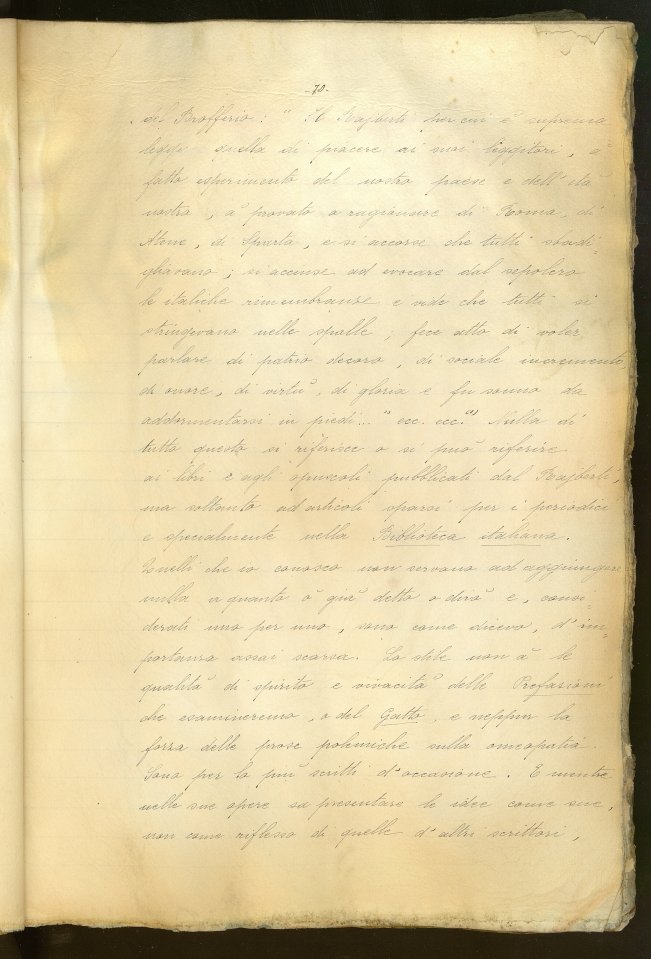 -70-
del Brofferio: "Il Rajberti per cui è suprema
legge quella di piacere ai suoi leggitori, à
fatto esperimento del nostro paese e dell'età
nostra, à provato a ragionare di Roma, di
Atene, di Sparta, e si accorse che tutti sbadi-
gliavano; si accinse ad evocare dal sepolcro
le italiche rimembranze e vide che tutti si
stringevano nelle spalle; fece atto di voler
parlare di patrio decoro, di sociale incremento,
di onore, di virtù, di gloria e fu sonno da
addormentarsi in piedi..." ecc. ecc. Nulla di
tutto questo si riferisce o si può riferire
ai libri e agli opuscoli pubblicati dal Rajberti,
ma soltanto ad articoli sparsi per i periodici
e specialmente nella Biblioteca italiana.
Quelli che io conosco non servono ad aggiungere
nulla a quanto ò già detto o dirò e, consi-
derati uno per uno, sono come dicevo, d'im-
portanza assai scarsa. Lo stile non à le
qualità di spirito e vivacità delle Prefazioni
che esamineremo, o del Gatto, e neppur la
forza delle prose polemiche sulla omeopatia.
Sono per lo più scritti d'occasione. E mentre
nelle sue opere sa presentare le idee come sue,
non come riflesso di quelle d'altri scrittori,